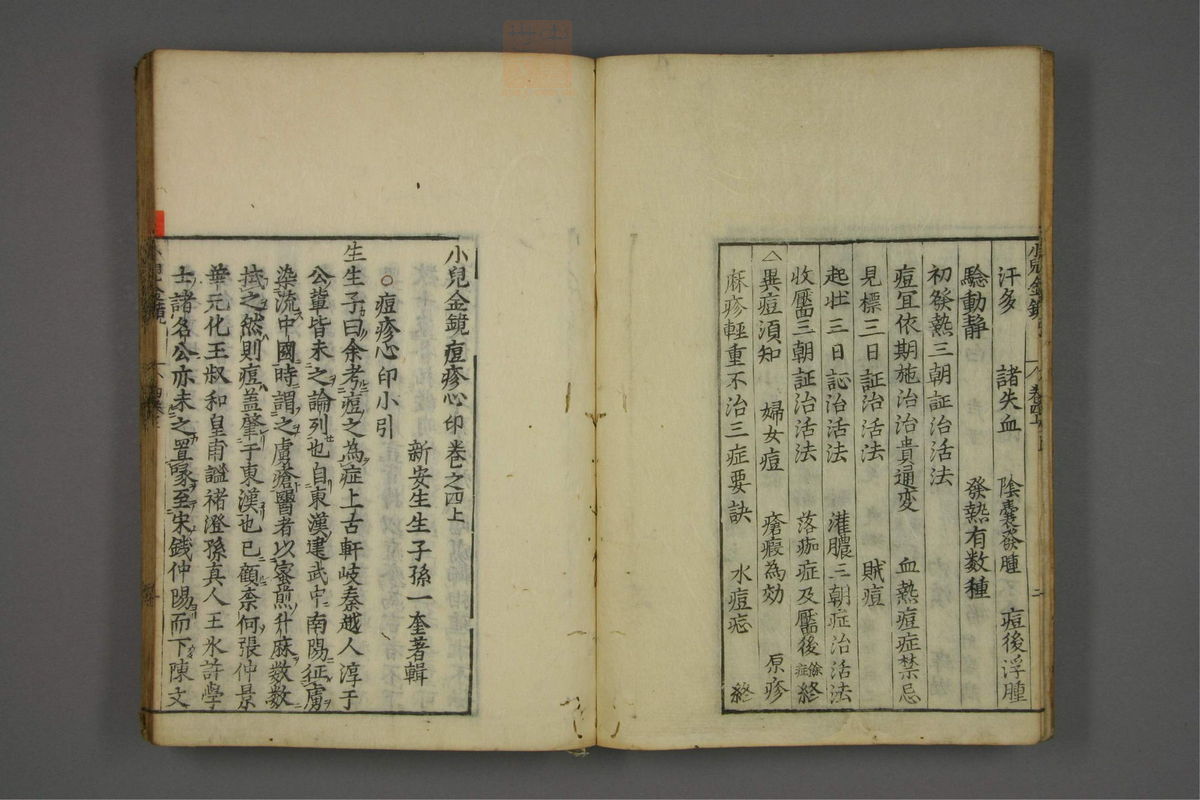 汗多　諸失血　陰囊發腫　痘後浮腫
驗動靜　發熱有数種
初發熱三朝証治活法
痘宜依期施治治貴通変　血熱痘症禁忌
見標三日証治活法　賊痘
起壯三日証治活法　灌膿三朝症治活法
收靨三朝証治活法　落痂症及靨後餘症終
△異痘須知　婦女痘　瘡瘢為効　原疹
麻疹輕重不治三症要訣　水痘　終
小兒金鏡痘疹心印卷之四上
新安生生子孫一奎著輯
○痘疹心印小引
生生子曰余考痘之為症上古軒岐秦越人淳于
公輩皆未之論列也自東漢建武中南陽征虜
染流中國時謂之虜瘡醫者以蜜煎升麻数数
拭之然則痘盖肇于東漢也已顧柰何張仲景
華元化王叔和皇甫謐褚澄孫真人王氷許學
士諸名公亦未之置喙至宋錢仲陽而下陳文